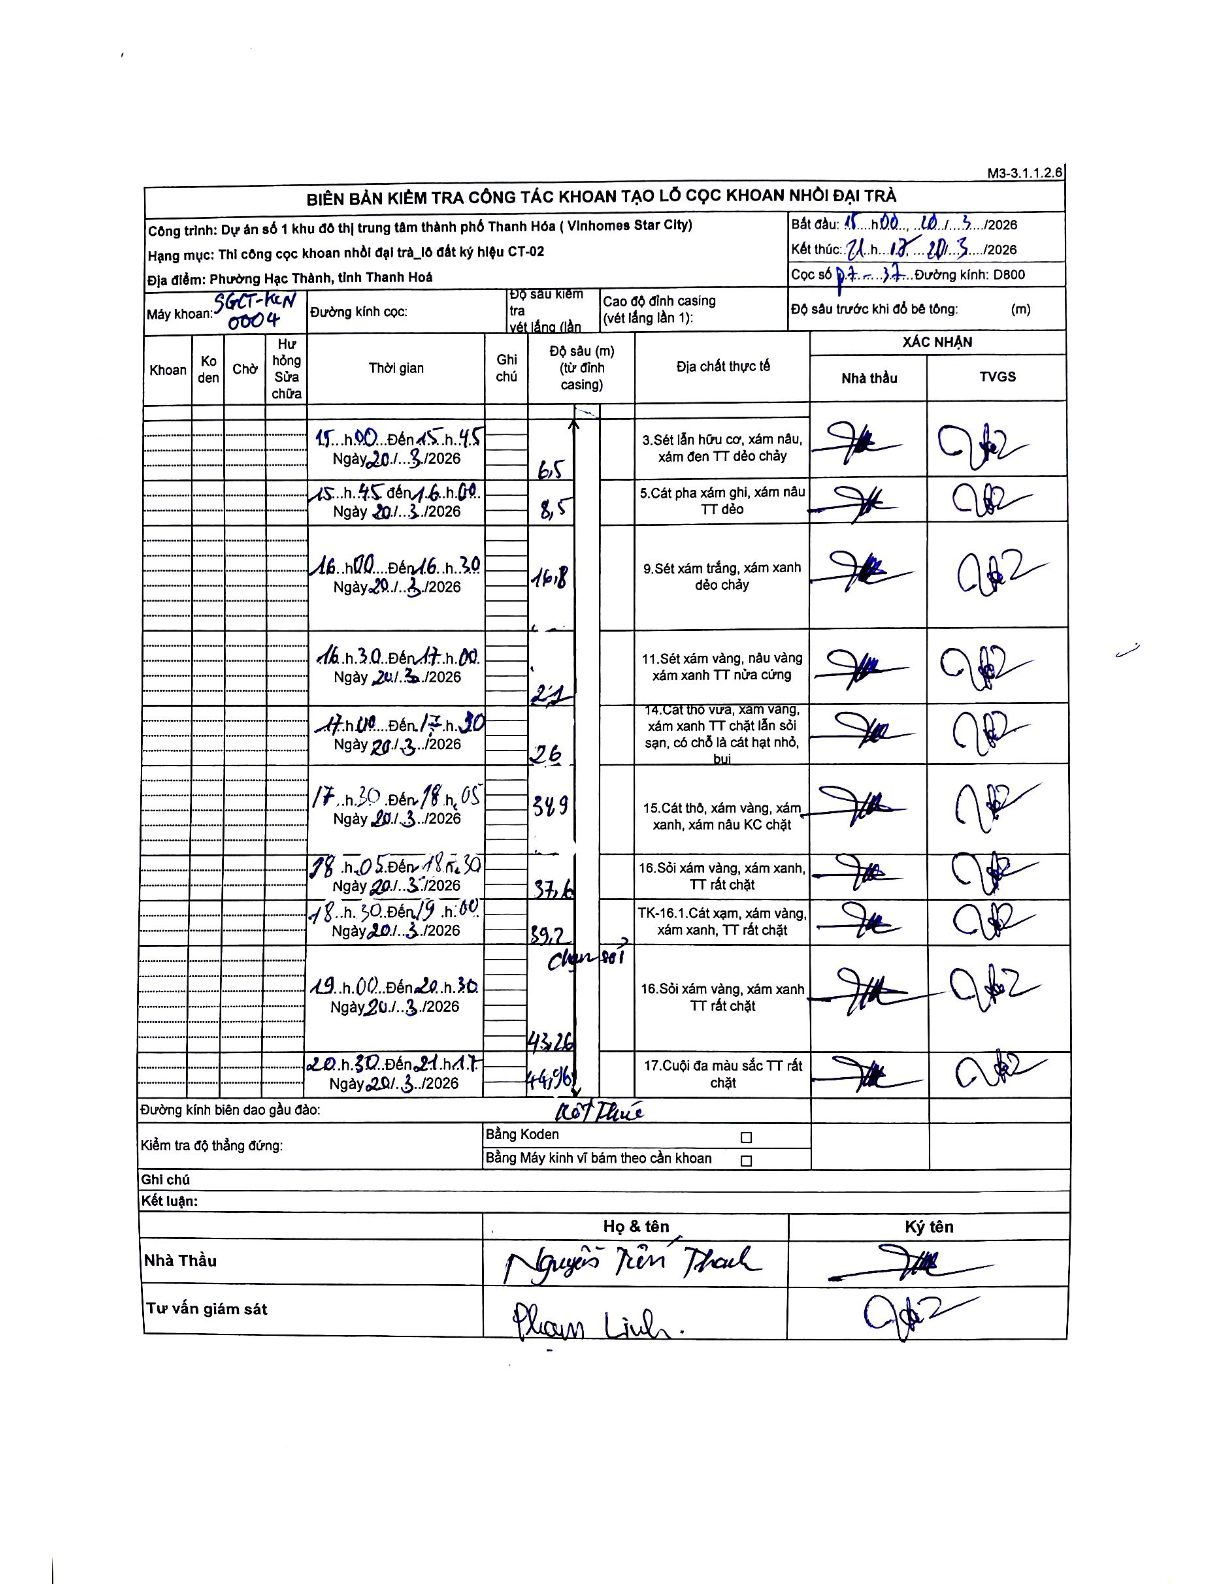 M3-3.1.1.2.6
BIÊN BẢN KIỂM TRA CÔNG TÁC KHOAN TẠO LỖ CỌC KHOAN NHỒI ĐẠI TRÀ
Công trình: Dự án số 1 khu đô thị trung tâm thành phố Thanh Hóa ( Vinhomes Star City)
Hạng mục: Thi công cọc khoan nhồi đại trà_lô đất ký hiệu CT-02
Địa điểm: Phường Hạc Thành, tỉnh Thanh Hoá
Bắt đầu: 15...h00..., ..20../...3..../2026
Kết thúc: 21.h...17.....20/.3..../2026
Cọc số P7-...37..Đường kính: D800
Máy khoan: SGCT-KCN 0004
Đường kính cọc:
Độ sâu kiểm tra
vét lắng (lần
Cao độ đỉnh casing
(vét lắng lần 1):
Độ sâu trước khi đổ bê tông: (m)
Khoan
Ko den
Chờ
Hư hỏng Sửa chữa
Thời gian
Ghi chú
Độ sâu (m) (từ đỉnh casing)
Địa chất thực tế
XÁC NHẬN
Nhà thầu
TVGS
15...h.00...Đến 15..h.45
Ngày 20./...3./2026
6,5
3.Sét lẫn hữu cơ, xám nâu,
xám đen TT dẻo chảy
15..h.45 đến 16..h.00.
Ngày 20./...3./2026
8,5
5.Cát pha xám ghi, xám nâu
TT dẻo
16..h00....Đến 16..h..30
Ngày 20../...3./2026
16,8
9.Sét xám trắng, xám xanh
dẻo chảy
16.h.30..Đến 17.h.00.
Ngày 20./..3../2026
21
11.Sét xám vàng, nâu vàng
xám xanh TT nửa cứng
17.h00....Đến 17.h.30
Ngày 20/..3../2026
26
14.Cát thô vừa, xám vàng,
xám xanh TT chặt lẫn sỏi
sạn, có chỗ là cát hạt nhỏ,
bụi
17..h.30.Đến 18.h.05
Ngày 20./...3../2026
34,9
15.Cát thô, xám vàng, xám
xanh, xám nâu KC chặt
18.h..05.Đến 18h.30
Ngày 20./...3./2026
37,6
16.Sỏi xám vàng, xám xanh,
TT rất chặt
18..h.30.Đến 19.h.00.
Ngày 20./..3../2026
39,2
TK-16.1.Cát xạm, xám vàng,
xám xanh, TT rất chặt
Chạm sỏi
19..h.00...Đến 20.h.30
Ngày 20./...3./2026
43,26
16.Sỏi xám vàng, xám xanh
TT rất chặt
20.h.30..Đến 21.h17.
Ngày 20./..3../2026
44,96
17.Cuội đa màu sắc TT rất
chặt
Đường kính biên dao gầu đào:
Kết Thúc
Kiểm tra độ thẳng đứng:
Bằng Koden ☐
Bằng Máy kinh vĩ bám theo cần khoan ☐
Ghi chú
Kết luận:
Họ & tên
Ký tên
Nhà Thầu
Nguyễn Tiến Thanh
Tư vấn giám sát
Phạm Linh.